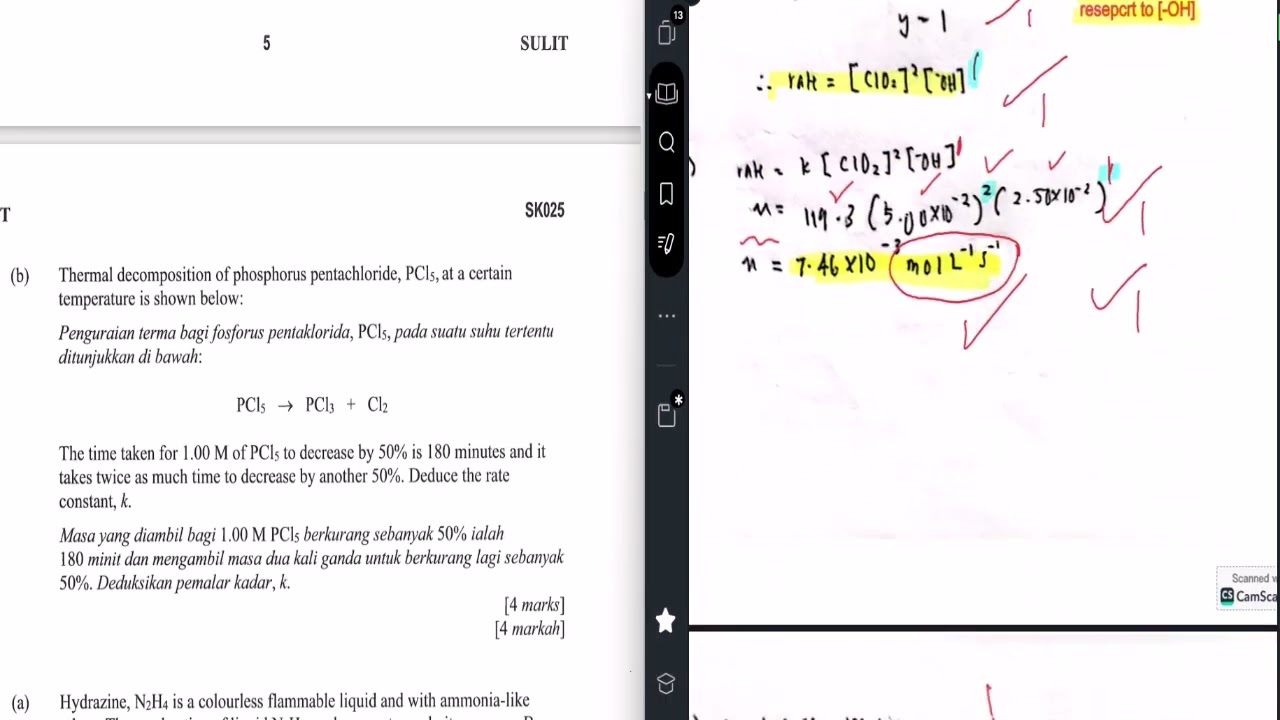 5
SULIT
T
SK025
(b) Thermal decomposition of phosphorus pentachloride, PCl₅, at a certain
temperature is shown below:
Penguraian terma bagi fosforus pentaklorida, PCl₅, pada suatu suhu tertentu
ditunjukkan di bawah:
PCl₅ → PCl₃ + Cl₂
The time taken for 1.00 M of PCl₅ to decrease by 50% is 180 minutes and it
takes twice as much time to decrease by another 50%. Deduce the rate
constant, k.
Masa yang diambil bagi 1.00 M PCl₅ berkurang sebanyak 50% ialah
180 minit dan mengambil masa dua kali ganda untuk berkurang lagi sebanyak
50%. Deduksikan pemalar kadar, k.
[4 marks]
[4 markah]
(a) Hydrazine, N₂H₄ is a colourless flammable liquid and with ammonia-like
13
*
y = 1
1
resepcrt to [-OH]
∴ rate = [ClO₂]² [⁻OH]¹
1
) rate = k [ClO₂]² [⁻OH]¹
x = 119.3 (5.00×10⁻²)² (2.50×10⁻²)¹
1
x = 7.46 ×10⁻³ mol L⁻¹ s⁻¹
1
Scanned w
CS CamSca